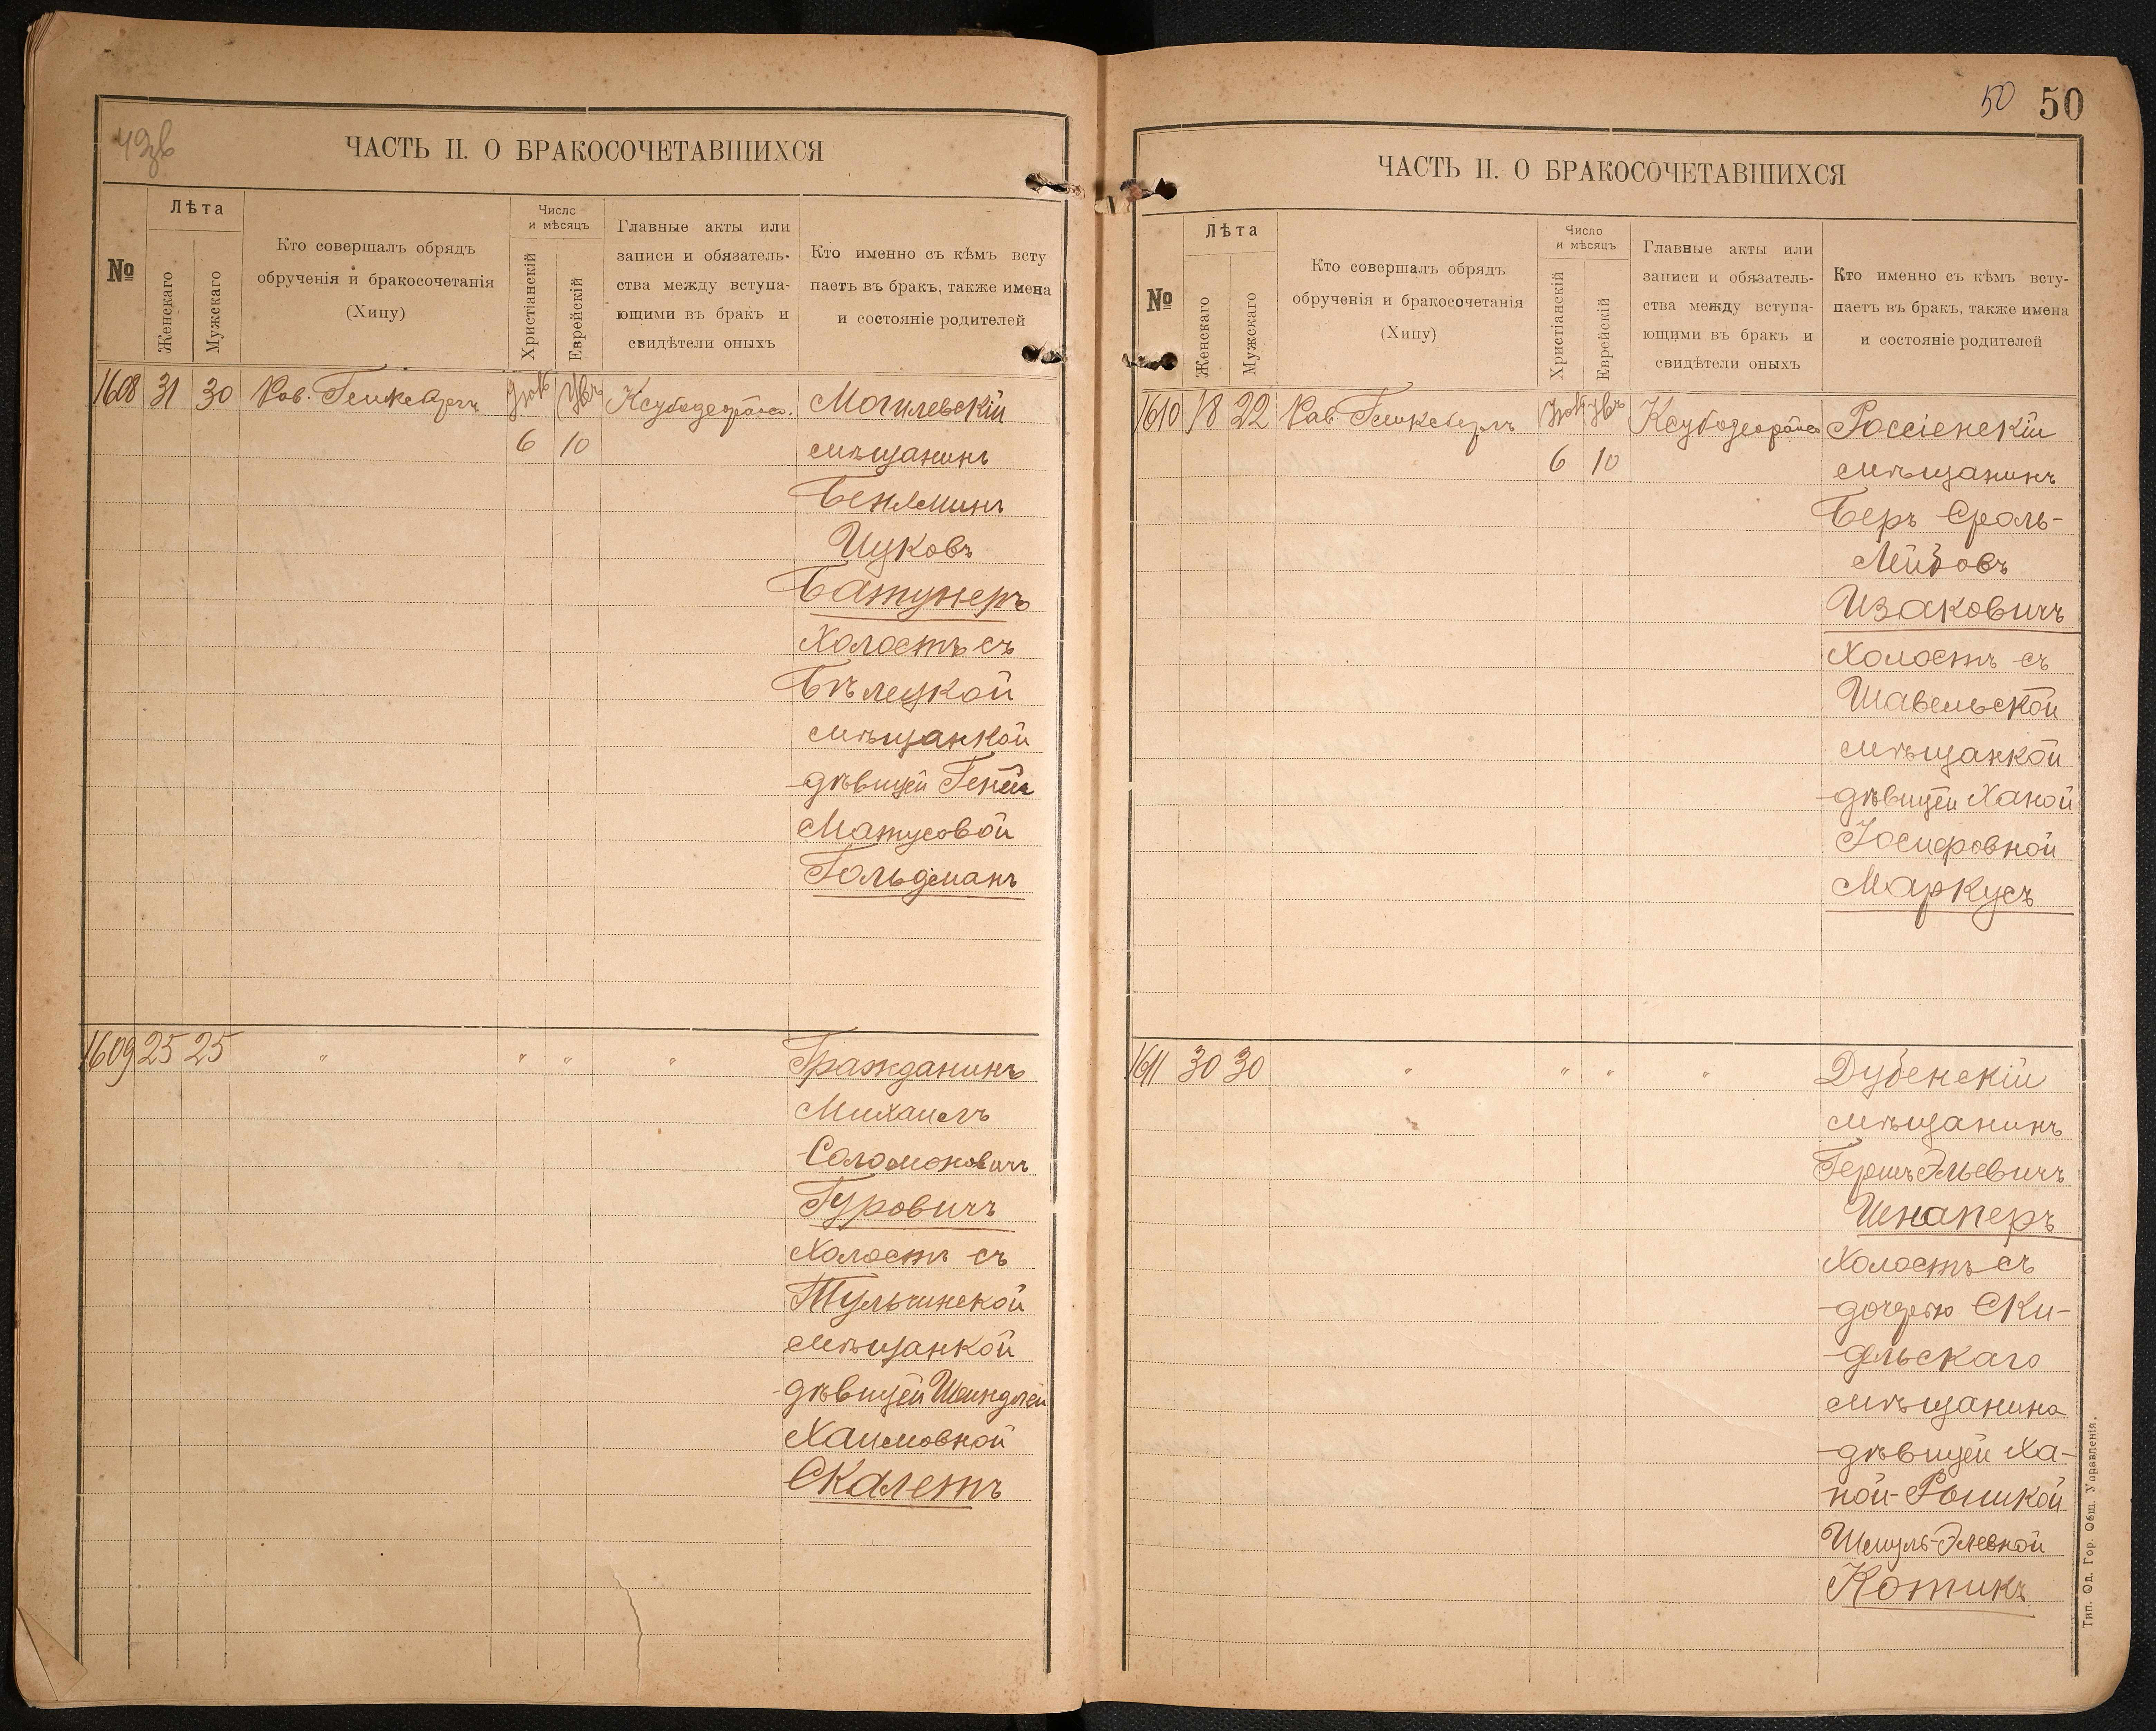 49 зв
ЧАСТЬ II. О БРАКОСОЧЕТАВШИХСЯ
№
Лѣта
Женскаго
Мужскаго
Кто совершалъ обрядъ
обрученія и бракосочетанія
(Хипу)
Число
и мѣсяцъ
Христіанскій
Еврейскій
Главные акты или
записи и обязатель-
ства между вступа-
ющими въ бракъ и
свидѣтели оныхъ
Кто именно съ кѣмъ всту
паетъ въ бракъ, также имена
и состояніе родителей
1608 31 30 Рав.
6 10
Могилевскій
мѣщанинъ
Беніаминъ
Ицковъ
Батунеръ
Холостъ съ
Бѣлецкой
мѣщанкой
дѣвицей Геніей
Матусовой
Гольдманъ
1609 25 25 " " " "
Гражданинъ
Михаилъ
Соломоновичъ
Гуровичъ
Холостъ съ
Тульчинской
мѣщанкой
дѣвицей Шейндлей
Хаимовной
Скалетъ
50 50
ЧАСТЬ II. О БРАКОСОЧЕТАВШИХСЯ
№
Лѣта
Женскаго
Мужскаго
Кто совершалъ обрядъ
обрученія и бракосочетанія
(Хипу)
Число
и мѣсяцъ
Христіанскій
Еврейскій
Главные акты или
записи и обязатель-
ства между вступа-
ющими въ бракъ и
свидѣтели оныхъ
Кто именно съ кѣмъ всту-
паетъ въ бракъ, также имена
и состояніе родителей
1610 18 22 Рав
6 10
Россіенскій
мѣщанинъ
Беръ Сроль-
Лейзовъ
Изаковичъ
Холостъ съ
Шавельской
мѣщанкой
дѣвицей Ханой
Іосифовной
Маркусъ
1611 30 30 " " " "
Дубенскій
мѣщанинъ
Гершъ Эльевичъ
Шнаперъ
Холостъ съ
дочерью Ски-
дельскаго
мѣщанина
дѣвицей Ха-
ной-Рышкой
Шмуль-Элевной
Котикъ
Тип. Од. Гор. Общ. Управленія.